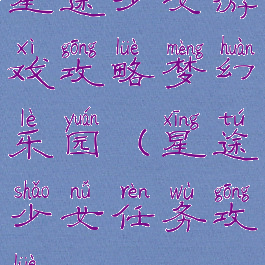 星途少女游
xì gōng lüè mèng huàn
戏攻略梦幻
lè yuán xīng tú
乐园（星途
shǎo nǚ rèn wù gōng
少女任务攻
lüè